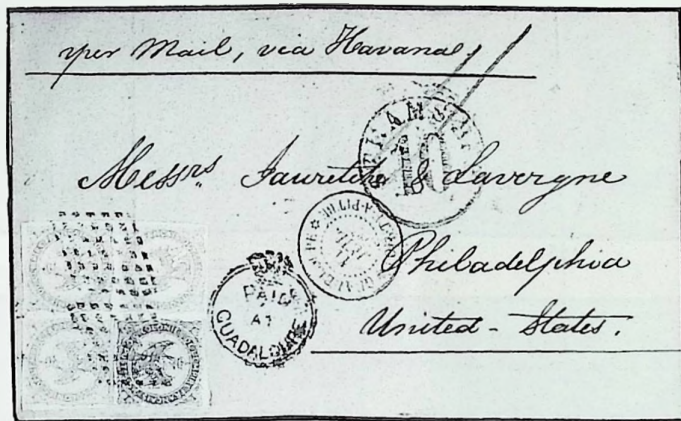 per Mail, via Havana
STEAMSHIP
10
Messrs Lauretche & Lavergne
Philadelphia
United-States.
PAID
AT
GUADALOUPE